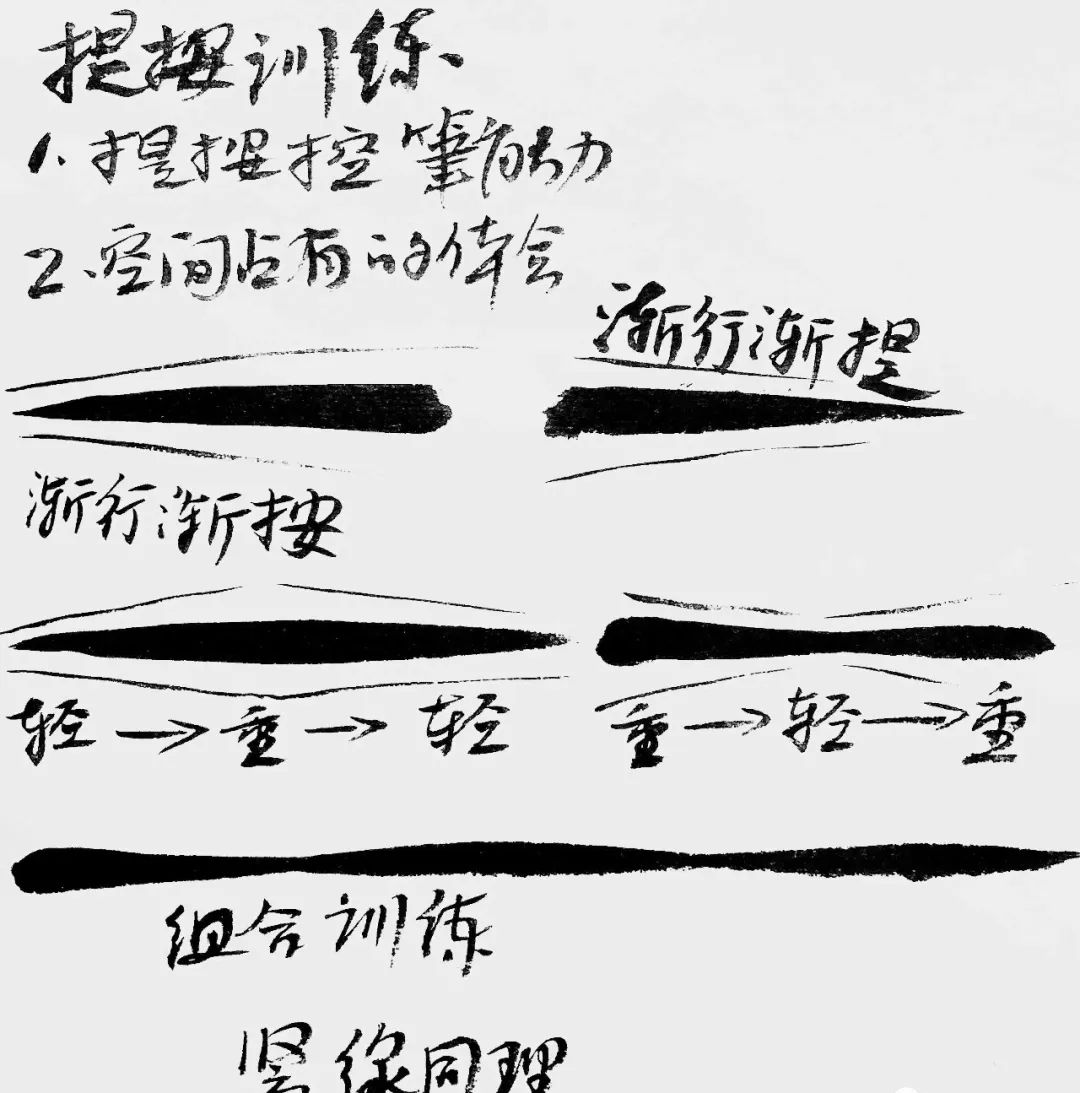 提按训练
1.提按控筆能力
2.空间占有的体会
渐行渐提
渐行渐按
轻→重→轻
重→轻→重
组合训练
竖線同理